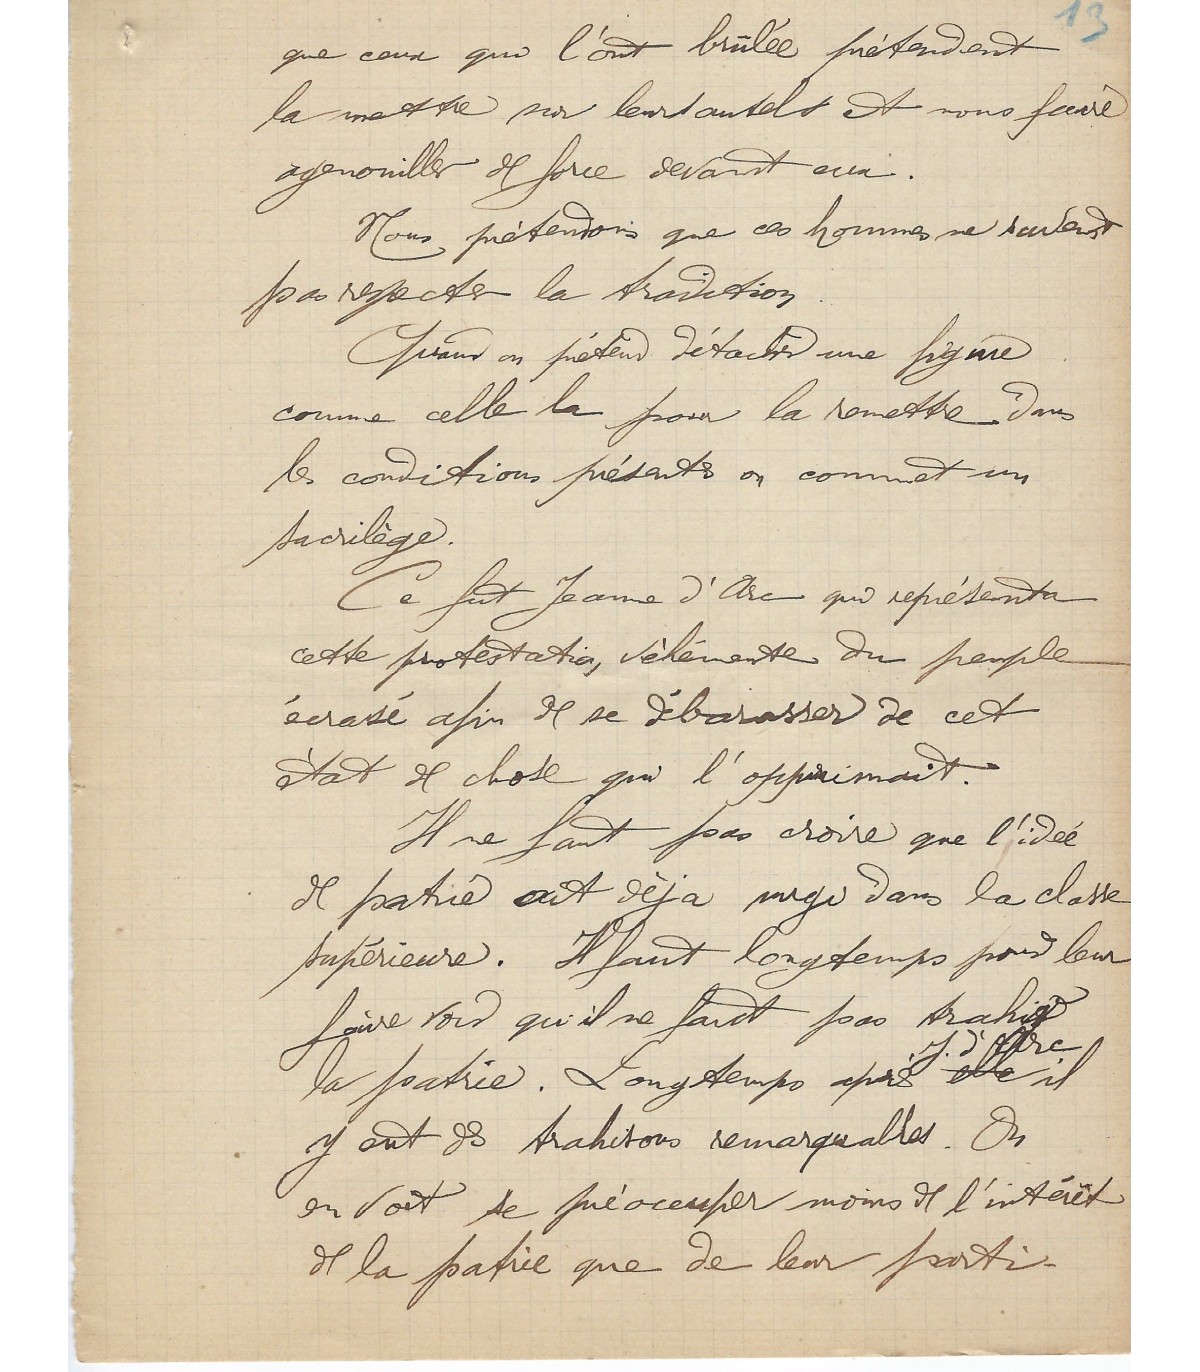 13
que ceux qui l'ont brûlée prétendent
la mettre sur leurs autels et nous faire
agenouiller de force devant eux.
Nous prétendons que ces hommes ne savent
pas respecter la tradition
Quand on prétend détacher une figure
comme celle la pour la remettre dans
les conditions présentes on commet un
sacrilège.
Ce fut Jeanne d'Arc qui représenta
cette protestation véhémente du peuple
écrasé afin de se débarasser de cet
état de chose qui l'opprimait.
Il ne faut pas croire que l'idée
de patrie ait déja surgi dans la classe
supérieure. Il faut longtemps pour leur
faire voir qu'il ne faut pas trahir
J. d'Arc
la patrie. Longtemps après elle il
y eut des trahisons remarquables. On
en voit se préoccuper moins de l'intérêt
de la patrie que de leur parti.